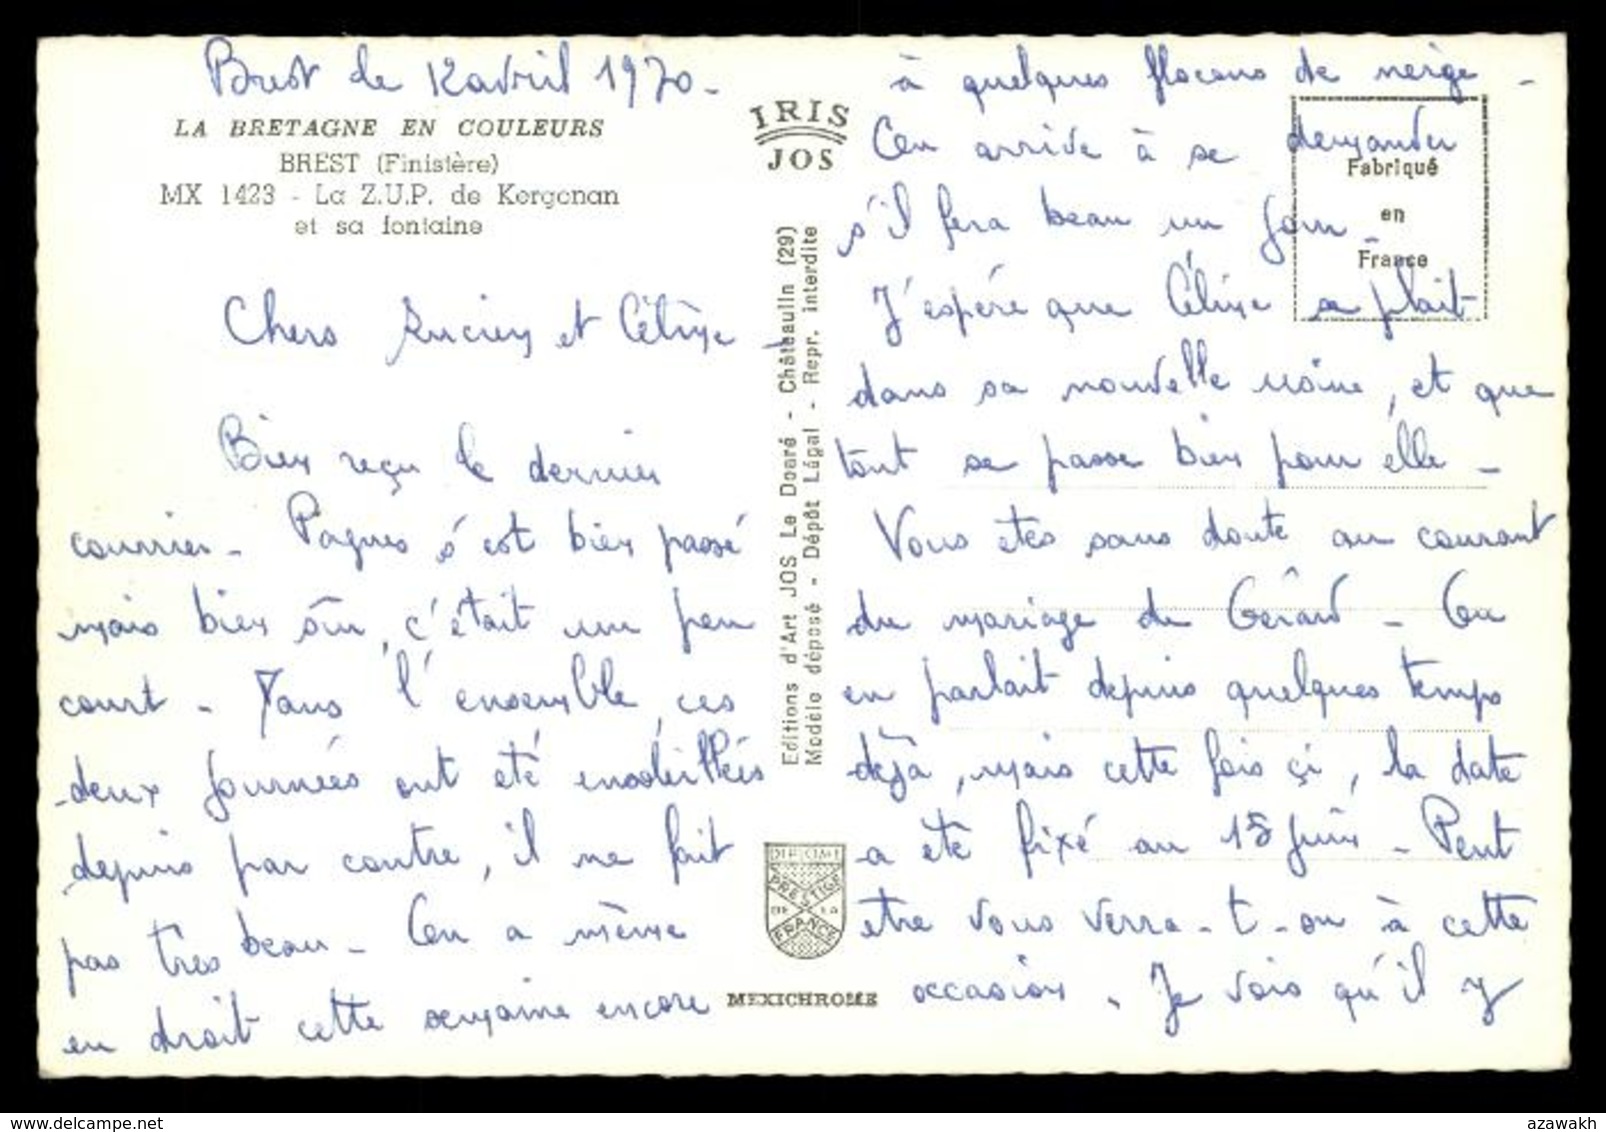 Brest le 12 avril 1970 -
LA BRETAGNE EN COULEURS
BREST (Finistère)
MX 1423 - La Z.U.P. de Kergonan
et sa fontaine
Chers Lucien et Céline -
Bien reçu le dernier
courrier - Paques s'est bien passé
mais bien sûr, c'était un peu
court - Dans l'ensemble, ces
deux journées ont été ensoleillées
depuis par contre, il ne fait
pas très beau - On a même
eu droit cette semaine encore
à quelques flocons de neige -
On arrive à se demander
s'il fera beau un jour -
J'espère que Céline se plait
dans sa nouvelle usine, et que
tout se passe bien pour elle -
Vous etes sans doute au courant
du mariage de Gérard - On
en parlait depuis quelques temps
déjà, mais cette fois çi, la date
a été fixé au 15 juin - Peut
etre vous verra-t-on à cette
occasion - Je vois qu'il y
IRIS
JOS
Fabriqué
en
France
Editions d'Art JOS Le Doaré - Châteaulin (29)
Modèle déposé - Dépôt Légal - Repr. interdite
DIPLOME
PRESTIGE
DE LA
FRANCE
MEXICHROME
azawakh